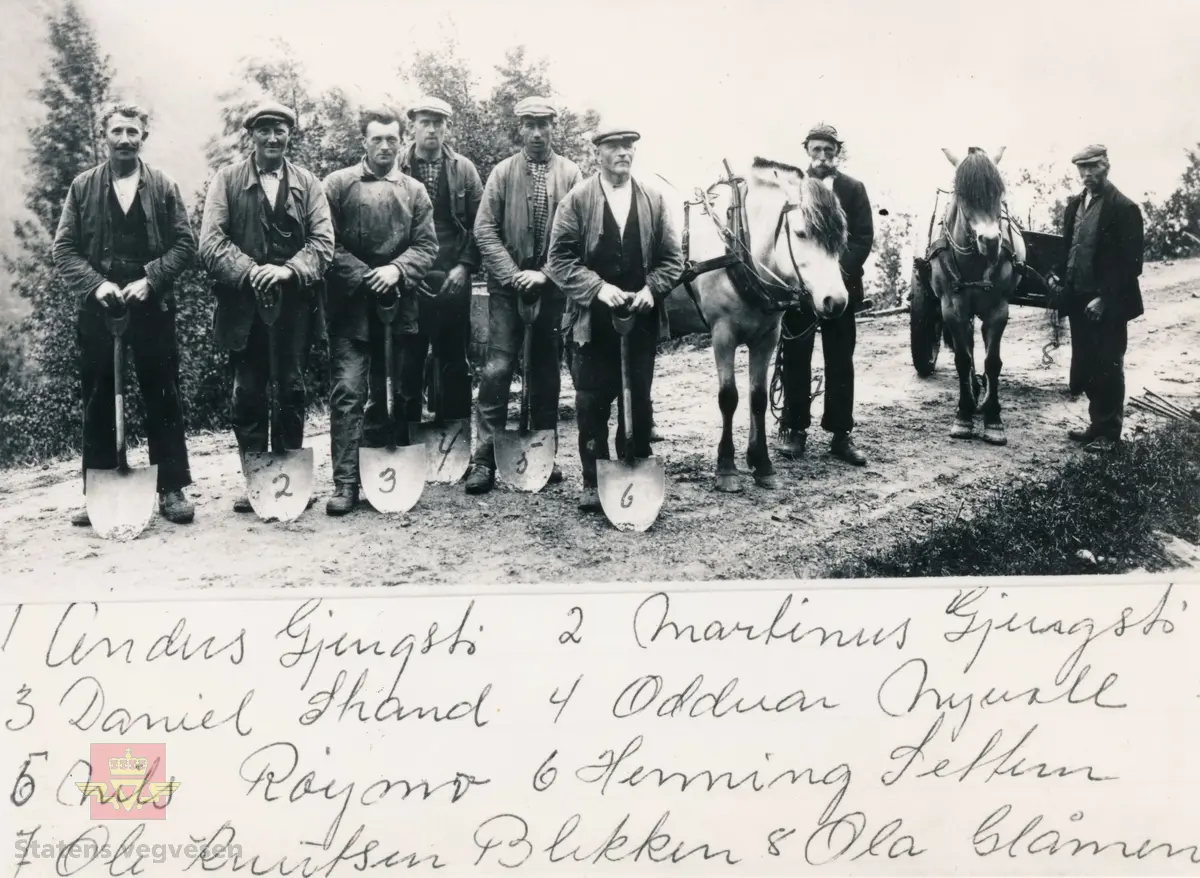 2 3 4 5 6
1 Andus Gjengsti 2 Martinus Gjengsti
3 Daniel Shand 4 Oddvar Myvoll
5 Nils Røymo 6 Henning Settem
7 Ole Knutsen Blekken 8 Ola Glåmen
Statens vegvesen